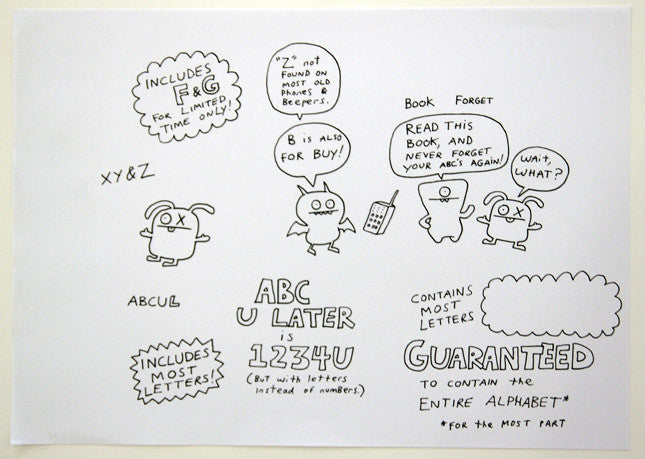 INCLUDES
F & G
FOR LIMITED
TIME ONLY!
"Z" not
FOUND ON
MOST OLD
PHONES &
Beepers.
B is ALSO
FOR BUY!
Book FORGET
READ THIS
BOOK, AND
NEVER FORGET
YOUR ABC'S AGAIN!
WAIT,
WHAT?
XY & Z
ABCUL
INCLUDES
MOST
LETTERS!
ABC
U LATER
is
1234U
(But with letters
instead of numbers.)
CONTAINS
MOST
LETTERS
GUARANTEED
TO CONTAIN the
ENTIRE ALPHABET*
*FOR the MOST PART